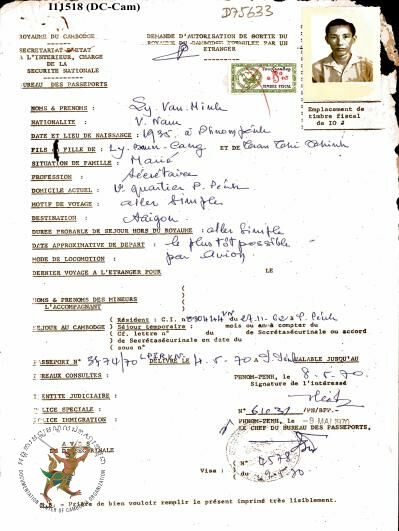 111518 (DC-Cam)
D75633
ROYAUME DU CAMBODGE
SECRETARIAT D'ETAT
A L'INTERIEUR, CHARGE
DE LA
SECURITE NATIONALE
BUREAU DES PASSEPORTS
DEMANDE D'AUTORISATION DE SORTIE DU
ROYAUME DU CAMBODGE FORMULEE PAR UN
ETRANGER
TIMBRE FISCAL
Emplacement de
timbre fiscal
de 10 #
NOMS & PRENOMS : Ly Van Minh
NATIONALITE : V. Nam
DATE ET LIEU DE NAISSANCE : 1935 à Phnom penh
FILS FILLE DE : Ly ET DE Tran Thi
SITUATION DE FAMILLE : Marié
PROFESSION : Secrétaire
DOMICILE ACTUEL : quartier P. Penh
MOTIF DE VOYAGE : aller simple
DESTINATION : Saigon
DUREE PROBABLE DE SEJOUR HORS DU ROYAUME : aller simple
DATE APPROXIMATIVE DE DEPART : le plus tôt possible
MODE DE LOCOMOTION : par avion
DERNIER VOYAGE A L'ETRANGER POUR LE
NOMS & PRENOMS DES MINEURS
L'ACCOMPAGNANT
( Résident : C.I. n° du 27.11.62 à P. Penh
SEJOUR AU CAMBODGE ( Séjour temporaire : mois ou an à compter du
( Cf. lettre n° du de Secrétaséurinale ou accord
( de Secrétaséurinale en date du
( sous n°
PASSEPORT N° 3974/70 DELIVRE LE 4.5.70 à VALABLE JUSQU'AU
BUREAUX CONSULTES :
PHNOM-PENH, le 8.5.70
Signature de l'intéressé
IDENTITE JUDICIAIRE :
POLICE SPECIALE :
POLICE IMMIGRATION :
N° /PN/BPP.-
PHNOM-PENH, le -9 MAI 1970
LE CHEF DU BUREAU DES PASSEPORTS,
Visa : ( N° 4578
( du 9.5.70
DOCUMENTATION CENTER OF CAMBODIA ORGANIZATION
N.B. - Prière de bien vouloir remplir le présent imprimé très lisiblement.